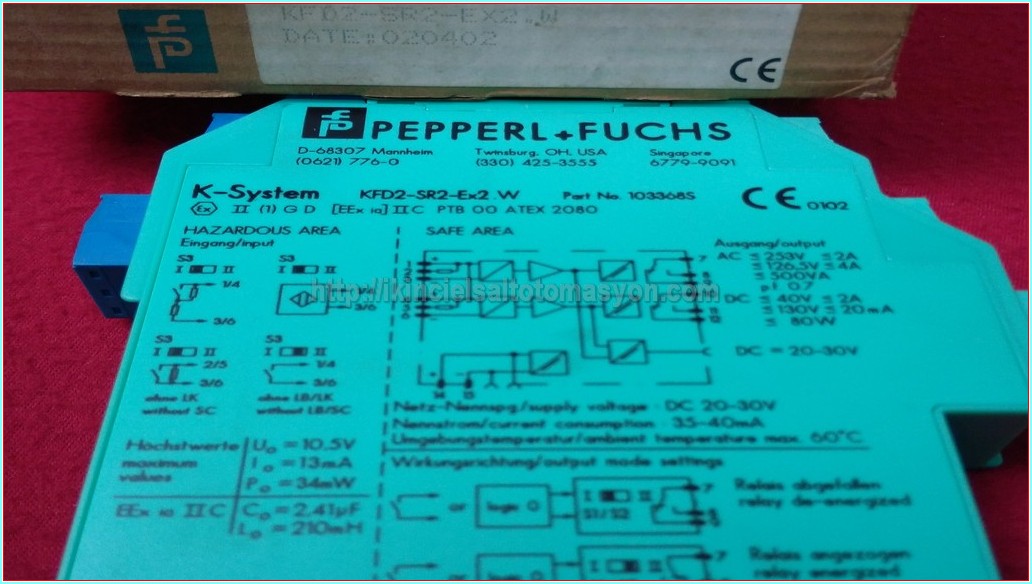 KFD2-SR2-EX2.W
DATE:020402
CE
PEPPERL+FUCHS
D-68307 Mannheim Twinsburg, OH. USA Singapore
(0621) 776-0 (330) 425-3555 6779-9091
K-System KFD2-SR2-Ex2.W Part No. 103368S CE 0102
Ex II (1) G D [EEx ia] IIC PTB 00 ATEX 2080
HAZARDOUS AREA SAFE AREA
Eingang/input Ausgang/output
S3 S3 AC ≤ 253V, ≤ 2A
I II I II 7 ≤ 126,5V ≤ 4A
≤ 500VA
1/4 pf 0.7
http://ikincielsaltotomasyon.com
3/6 DC ≤ 40V, ≤ 2A
≤ 130V ≤ 20mA
≤ 80W
S3 S3
I II I II DC = 20-30V
2/5 1/4
3/6 3/6
ohne LK ohne LB/LK 14 15
without SC without LB/SC
Netz-Nennspg./supply voltage : DC 20-30V
Nennstrom/current consumption : 35-40mA
Umgebungstemperatur/ambient temperature max. 60°C
Höchstwerte Uo = 10,5V
maximum Io = 13mA
values Po = 34mW
Wirkungsrichtung/output mode settings
EEx ia IIC Co = 2.41µF
Lo = 210mH
or logic 0 I II 7 Relais abgefallen
S1/S2 relay de-energized
or I II 7 Relais angezogen
relay energized